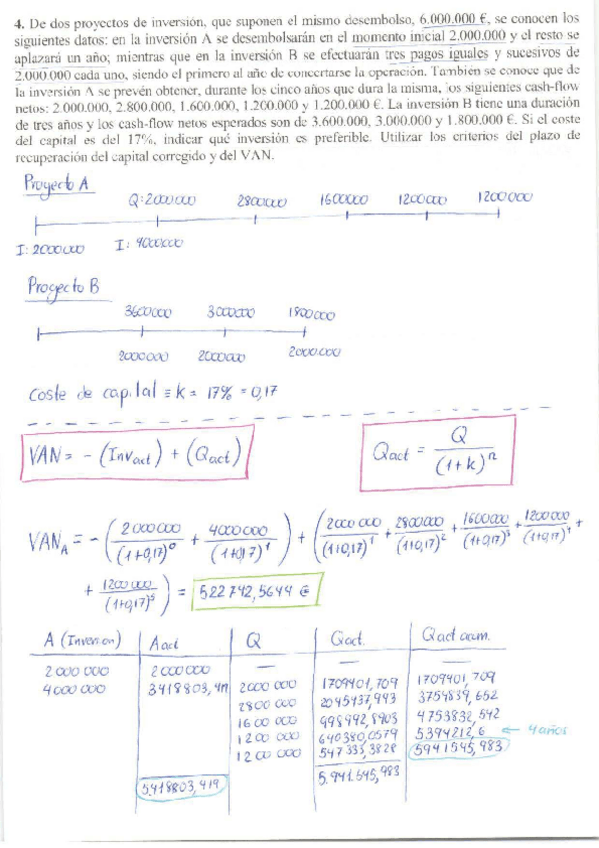 4. De dos proyectos de inversión, que suponen el mismo desembolso, 6.000.000 €, se conocen los
siguientes datos: en la inversión A se desembolsarán en el momento inicial 2.000.000 y el resto se
aplazará un año; mientras que en la inversión B se efectuarán tres pagos iguales y sucesivos de
2.000.000 cada uno, siendo el primero al año de concertarse la operación. También se conoce que de
la inversión A se prevén obtener, durante los cinco años que dura la misma, los siguientes cash-flow
netos: 2.000.000, 2.800.000, 1.600.000, 1.200.000 y 1.200.000 €. La inversión B tiene una duración
de tres años y los cash-flow netos esperados son de 3.600.000, 3.000.000 y 1.800.000 €. Si el coste
del capital es del 17%, indicar qué inversión es preferible. Utilizar los criterios del plazo de
recuperación del capital corregido y del VAN.
Proyecto A
Q: 2000000 2800000 1600000 1200000 1200000
I: 2000000 I: 4000000
Proyecto B
3600000 3000000 1800000
2000000 2000000 2000000
Coste de capital ≡ k = 17% = 0,17
VAN = - (Inv act) + (Qact) Qact = Q / (1+k)^n
VAN_A = - (2000000 / (1+0,17)^0 + 4000000 / (1+0,17)^1) + (2000000 / (1+0,17)^1 + 2800000 / (1+0,17)^2 + 1600000 / (1+0,17)^3 + 1200000 / (1+0,17)^4 +
+ 1200000 / (1+0,17)^5) = 522742,5644 €
A (Inversion) Aact Q Qact. Qact acum.
2000000 2000000 — — —
4000000 3418803,419 2000000 1709401,709 1709401,709
2800000 2045437,943 3754839,652
1600000 998992,8903 4753832,542
1200000 640380,0579 5394212,6 ← 4 años
1200000 547333,3828 5941545,983
5418803,419 5.941.545,983